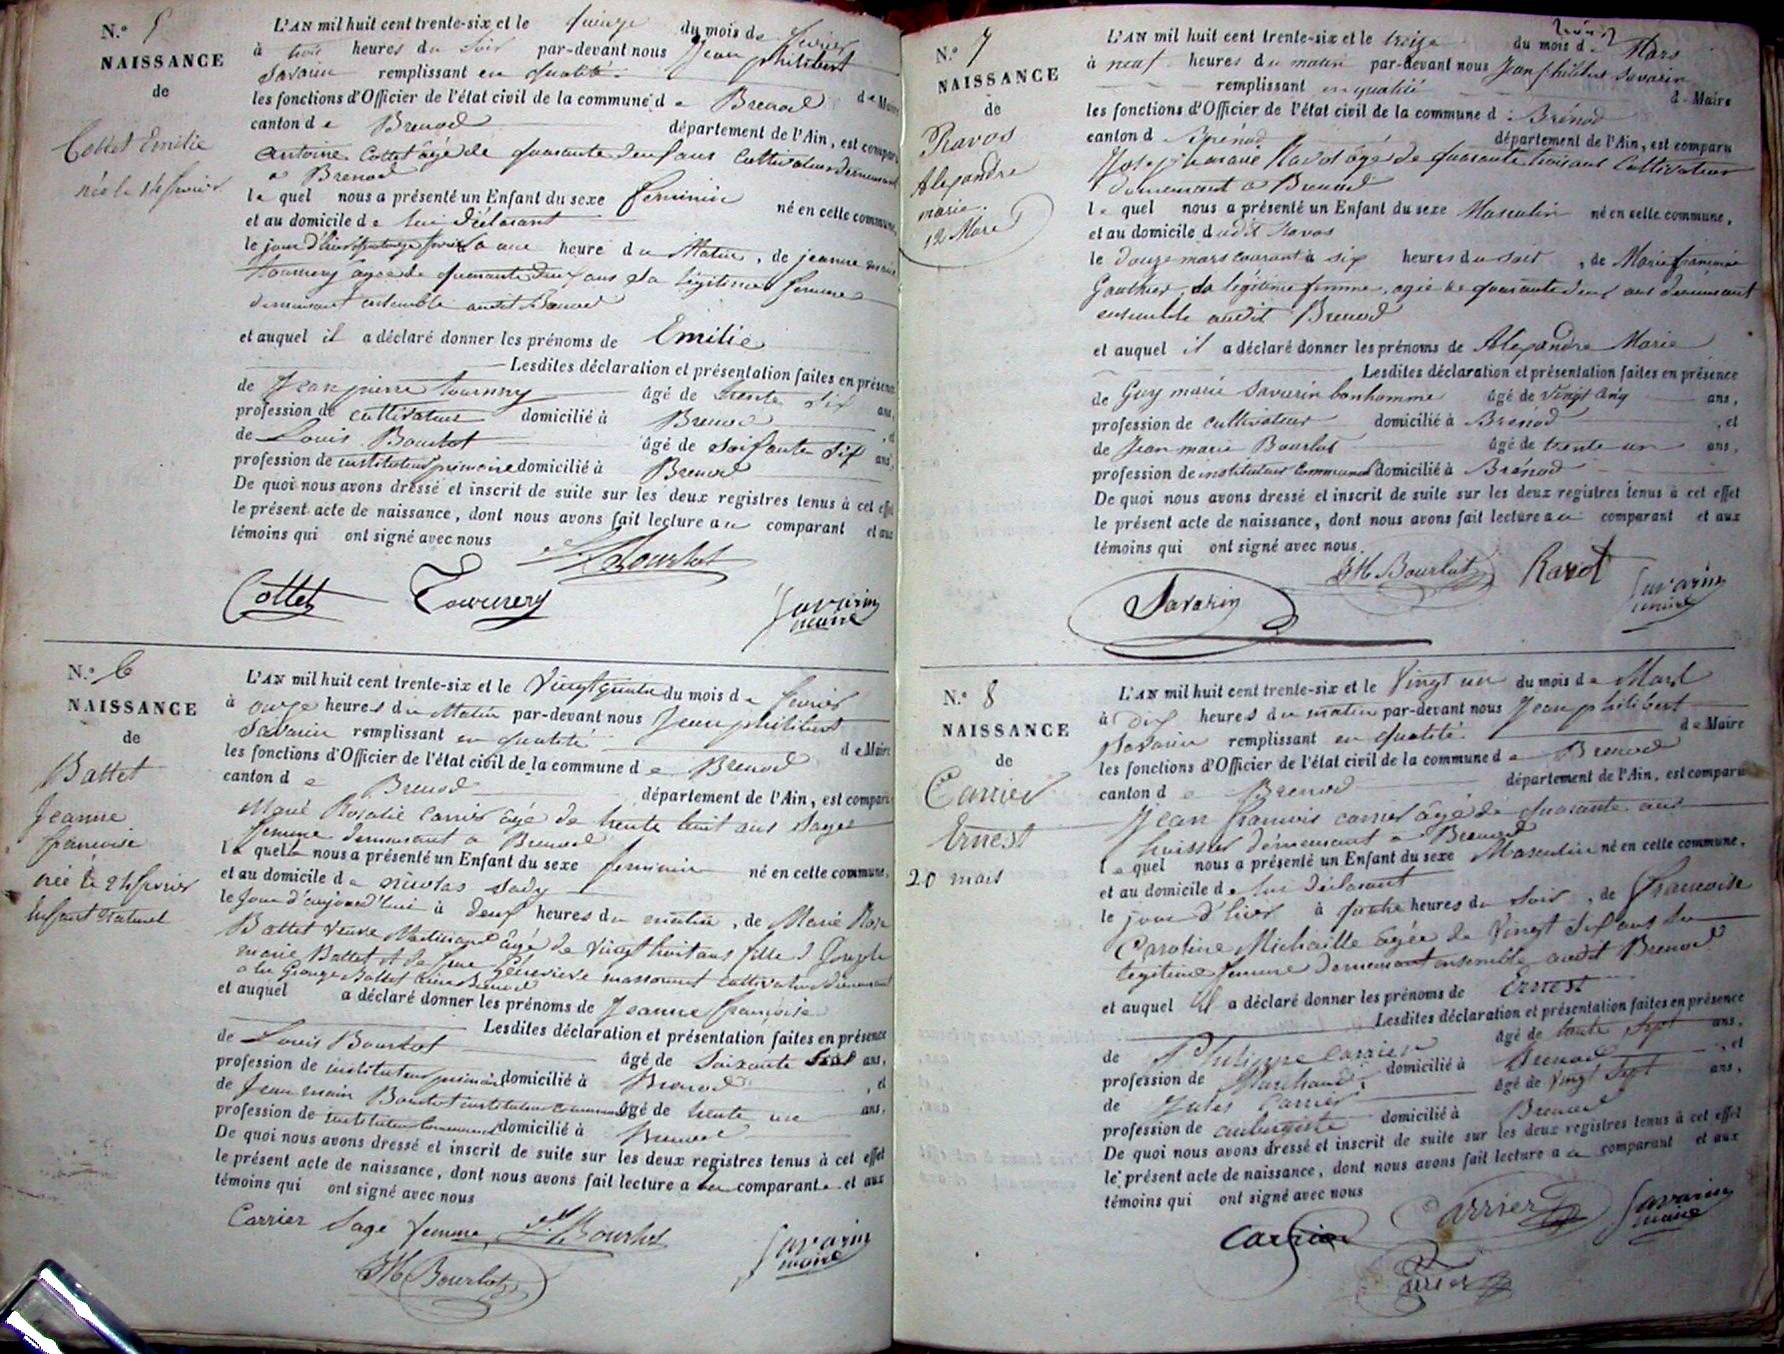 N.º 5
NAISSANCE
de
Collet Emilie
née le 14 fevrier
L'AN mil huit cent trente-six et le quinze du mois de fevrier
à trois heures du Soir par-devant nous Jean philibert
Savarin remplissant en qualité de Maire
les fonctions d'Officier de l'état civil de la commune de Brenod
canton de Brenod département de l'Ain, est comparu
Antoine Collet âgé de quarante deux ans Cultivateur demeurant
a Brenod
le quel nous a présenté un Enfant du sexe feminin né en cette commune,
et au domicile de lui Déclarant
le jour d'hier à une heure du Matin, de jeanne marie
Tournery agée de quarante deux ans Sa légitime femme
demeurant ensemble audit Brenod
et auquel il a déclaré donner les prénoms de Emilie
Lesdites déclaration et présentation faites en présence
de Jean pierre tournery âgé de trente six ans,
profession de cultivateur domicilié à Brenod, et
de Louis Bourbot âgé de soixante six ans,
profession de instituteur primaire domicilié à Brenod
De quoi nous avons dressé et inscrit de suite sur les deux registres tenus à cet effet
le présent acte de naissance, dont nous avons fait lecture au comparant et aux
témoins qui ont signé avec nous
Bourbot
Collet Tournery Savarin
maire
N.º 6
NAISSANCE
de
Battet
Jeanne
françoise
née le 24 fevrier
Enfant Naturel
L'AN mil huit cent trente-six et le Vingt quatre du mois de fevrier
à onze heures du Matin par-devant nous Jean philibert
Savarin remplissant en qualité de Maire
les fonctions d'Officier de l'état civil de la commune de Brenod
canton de Brenod département de l'Ain, est comparu
Marie Rosalie Carrier âgé de trente huit ans Sage
femme demeurant a Brenod
la quelle nous a présenté un Enfant du sexe feminin né en cette commune,
et au domicile de nicolas Sady
le Jour d'aujourd'hui à deux heures du matin, de Marie Rose
Battet Veuve âgé de vingt huit ans fille d Joseph
marie Battet et de Genevieve massonnet Cultivateur demeurant
et auquel a déclaré donner les prénoms de Jeanne françoise
Lesdites déclaration et présentation faites en présence
de Louis Bourbot âgé de Soixante six ans,
profession de instituteur primaire domicilié à Brenod, et
de Jean marie Bourbot instituteur communal âgé de trente un ans,
profession de instituteur Communal domicilié à Brenod
De quoi nous avons dressé et inscrit de suite sur les deux registres tenus à cet effet
le présent acte de naissance, dont nous avons fait lecture a la comparante et aux
témoins qui ont signé avec nous
Carrier Sage femme Bourbot Savarin
maire
JM Bourbot
N.º 7
NAISSANCE
de
Ravos
Alexandre
marie.
12 Mars
L'AN mil huit cent trente-six et le treize du mois de Mars
à neuf heures du matin par-devant nous Jean philibert Savarin
remplissant en qualité de Maire
les fonctions d'Officier de l'état civil de la commune d Brénod
canton d Brénod département de l'Ain, est comparu
Joseph Ravot âgé de quarante trois ans Cultivateur
demeurant a Brenod
le quel nous a présenté un Enfant du sexe Masculin né en cette commune,
et au domicile dudit Ravos
le douze mars courant à six heures du soir, de Marie françoise
Gauthier, sa légitime femme, agée de quarante deux ans demeurant
ensemble audit Brenod
et auquel il a déclaré donner les prénoms de Alexandre Marie
Lesdites déclaration et présentation faites en présence
de Guy marie Savarin bonhomme âgé de Vingt cinq ans,
profession de cultivateur domicilié à Brénod, et
de Jean marie Bourbot âgé de trente un ans,
profession de instituteur Communal domicilié à Brénod
De quoi nous avons dressé et inscrit de suite sur les deux registres tenus à cet effet
le présent acte de naissance, dont nous avons fait lecture au comparant et aux
témoins qui ont signé avec nous.
JM Bourbot Ravot Savarin
maire
Savarin
N.º 8
NAISSANCE
de
Carrier
Ernest
20 mars
L'AN mil huit cent trente-six et le Vingt un du mois de Mars
à dix heures du matin par-devant nous Jean philibert
Savarin remplissant en qualité de Maire
les fonctions d'Officier de l'état civil de la commune de Brenod
canton de Brenod département de l'Ain, est comparu
Jean francois carrier âgé de quarante ans
huissier demeurant a Brenod
le quel nous a présenté un Enfant du sexe Masculin né en cette commune,
et au domicile de lui déclarant
le jour d'hier à quatre heures du soir, de francoise
Caroline Michaille agée de Vingt six ans sa
legitime femme demeurant ensemble audit Brenod
et auquel il a déclaré donner les prénoms de Ernest
Lesdites déclaration et présentation faites en présence
de Philippe Carrier âgé de trente sept ans,
profession de Marchand domicilié à Brenod, et
de Jules Carrier âgé de vingt sept ans,
profession de aubergiste domicilié à Brenod
De quoi nous avons dressé et inscrit de suite sur les deux registres tenus à cet effet
le présent acte de naissance, dont nous avons fait lecture au comparant et aux
témoins qui ont signé avec nous
Carrier Carrier Savarin
maire